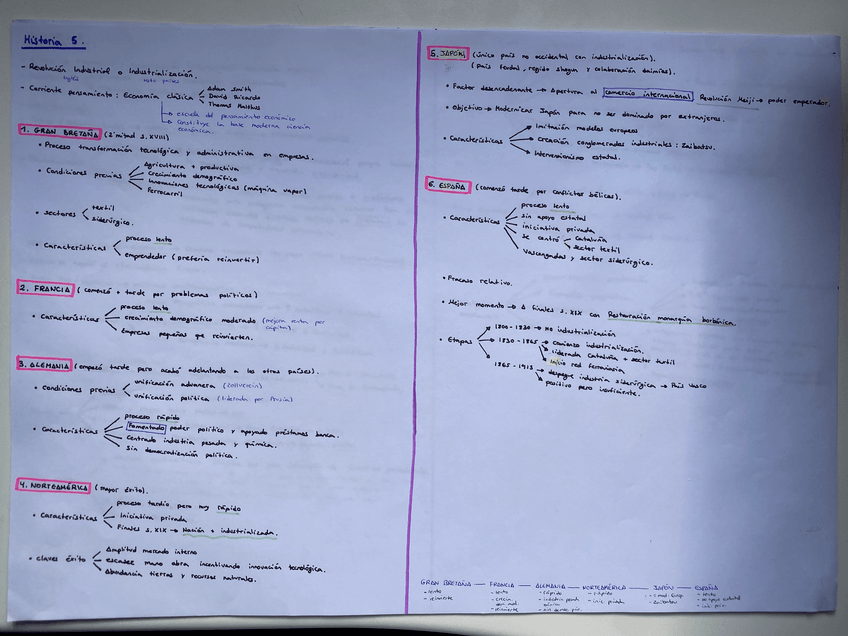 Historia 5.
- Revolución Industrial o Industrialización.
inglés
resto países
- Corriente pensamiento: Economía clásica
Adam Smith
David Ricardo
Thomas Malthus
escuela del pensamiento económico
Constituye la base moderna ciencia
económica.
1. GRAN BRETAÑA (2ª mitad s. XVIII)
• Proceso transformación tecnológica y administrativa en empresas.
• Condiciones previas
Agricultura + productiva
Crecimiento demográfico
Innovaciones tecnológicas (máquina vapor)
Ferrocarril
• Sectores
textil
siderúrgico.
• Características
proceso lento
emprendedor (prefería reinvertir)
2. FRANCIA (comenzó + tarde por problemas políticos)
• Características
proceso lento
crecimiento demográfico moderado (mejora renta per
cápita).
Empresas pequeñas que reinvierten.
3. ALEMANIA (empezó tarde pero acabó adelantando a los otros países).
• Condiciones previas
unificación aduanera (Zollverein)
unificación política (liderada por Prusia)
• Características
proceso rápido
Fomentado poder político y apoyado préstamos banca.
Centrado industria pesada y química.
Sin democratización política.
4. NORTEAMÉRICA (mayor éxito).
• Características
proceso tardío pero muy rápido
Iniciativa privada
Finales s. XIX → Nación + industrializada.
• Claves éxito
Amplitud mercado interno
escasez mano obra incentivando innovación tecnológica.
Abundancia tierras y recursos naturales.
5. JAPÓN (único país no occidental con industrialización).
(país feudal, regido shogun y colaboración daimios).
• Factor desencadenante → Apertura al comercio internacional Revolución Meiji → poder emperador.
• Objetivo → Modernizar Japón para no ser dominado por extranjeros.
• Características
Imitación modelos europeos
Creación conglomerados industriales: Zaibatsu.
Intervencionismo estatal.
6. ESPAÑA (comenzó tarde por conflictos bélicos).
• Características
proceso lento
sin apoyo estatal
iniciativa privada
Se centró
Cataluña
sector textil
Vascongadas y sector siderúrgico.
• Fracaso relativo.
• Mejor momento → A finales s. XIX con Restauración monarquía borbónica.
• Etapas
1800-1830 → No industrialización
1830-1865 → Comienzo industrialización.
liderada Cataluña + sector textil
Inicio red ferroviaria
1865-1913 → despegue industria siderúrgica → País Vasco
positivo pero insuficiente.
GRAN BRETAÑA — FRANCIA — ALEMANIA — NORTEAMÉRICA — JAPÓN — ESPAÑA
- lento
- reinvierte
- lento
- reinvierte
- rápido
- rápido
- inic. privada
- Zaibatsu
- lento
- sin apoyo estatal